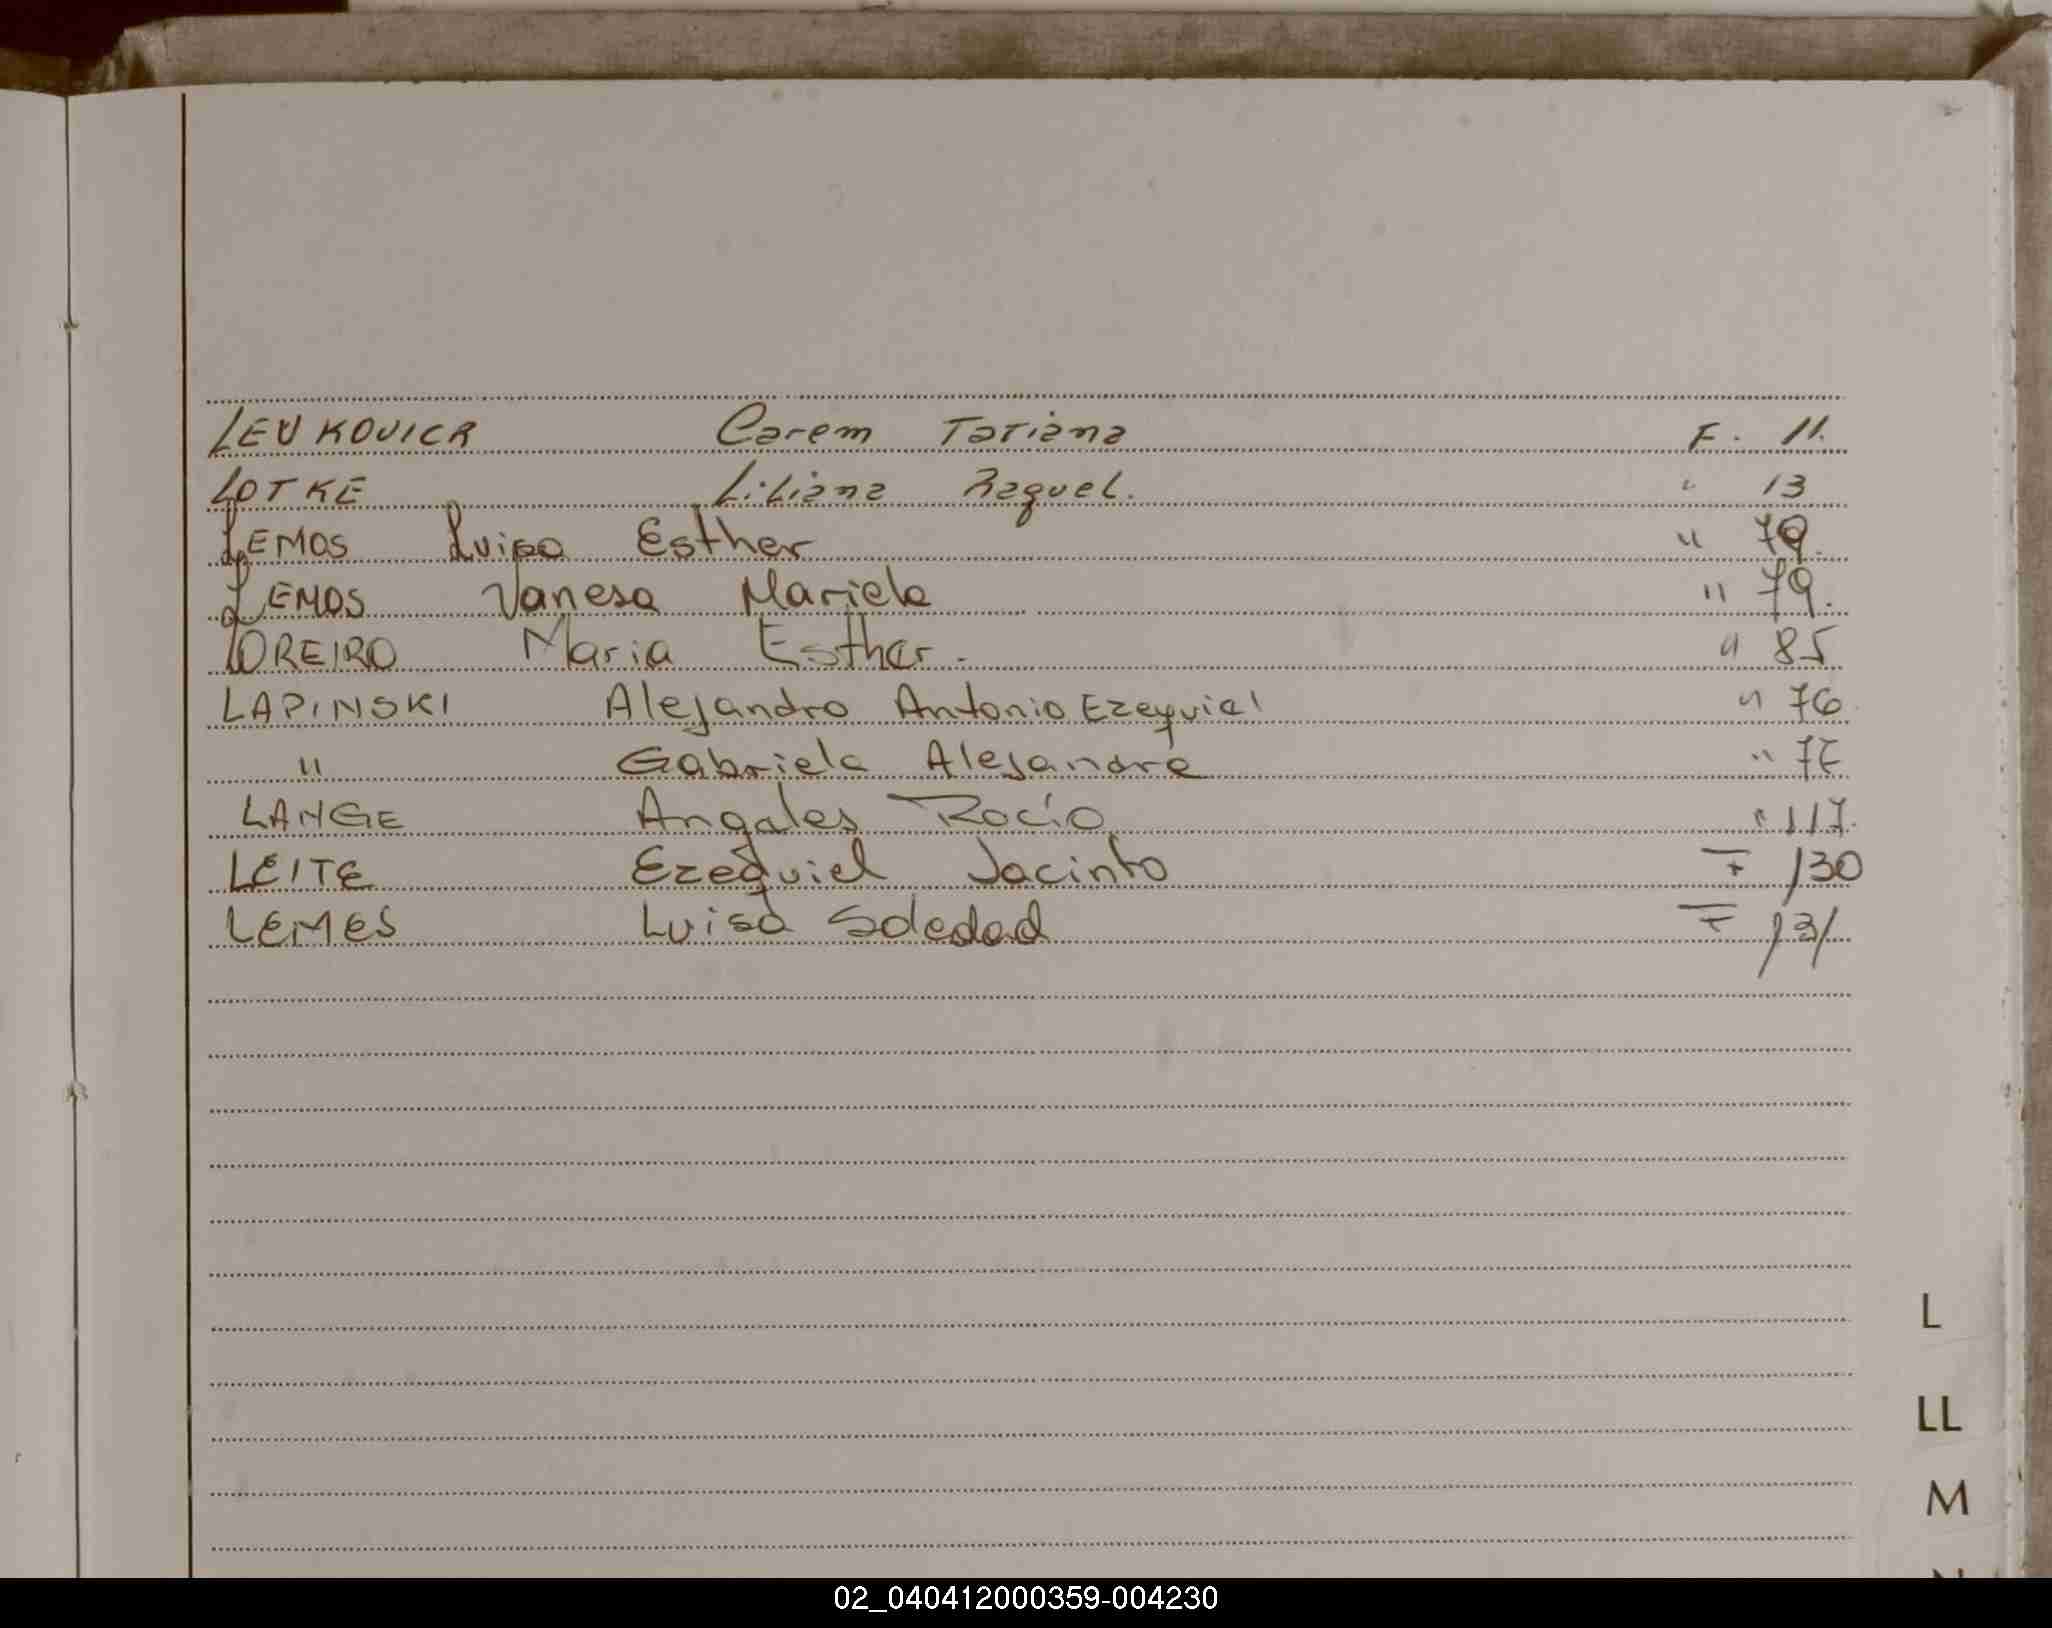 LEVKOVICR Carem Tatiana F. 11.
LOTKE Liliana Raquel. " 13
LEMOS Luisa Esther " 79.
LEMOS Vanesa Mariela " 79.
LOREIRO Maria Esther. " 85
LAPINSKI Alejandro Antonio Ezequiel " 76
" Gabriela Alejandra " 77
LANGE Angeles Rocío " 117.
LEITE Ezequiel Jacinto F 130
LEMES Luisa Soledad F 131
L
LL
M
02_040412000359-004230